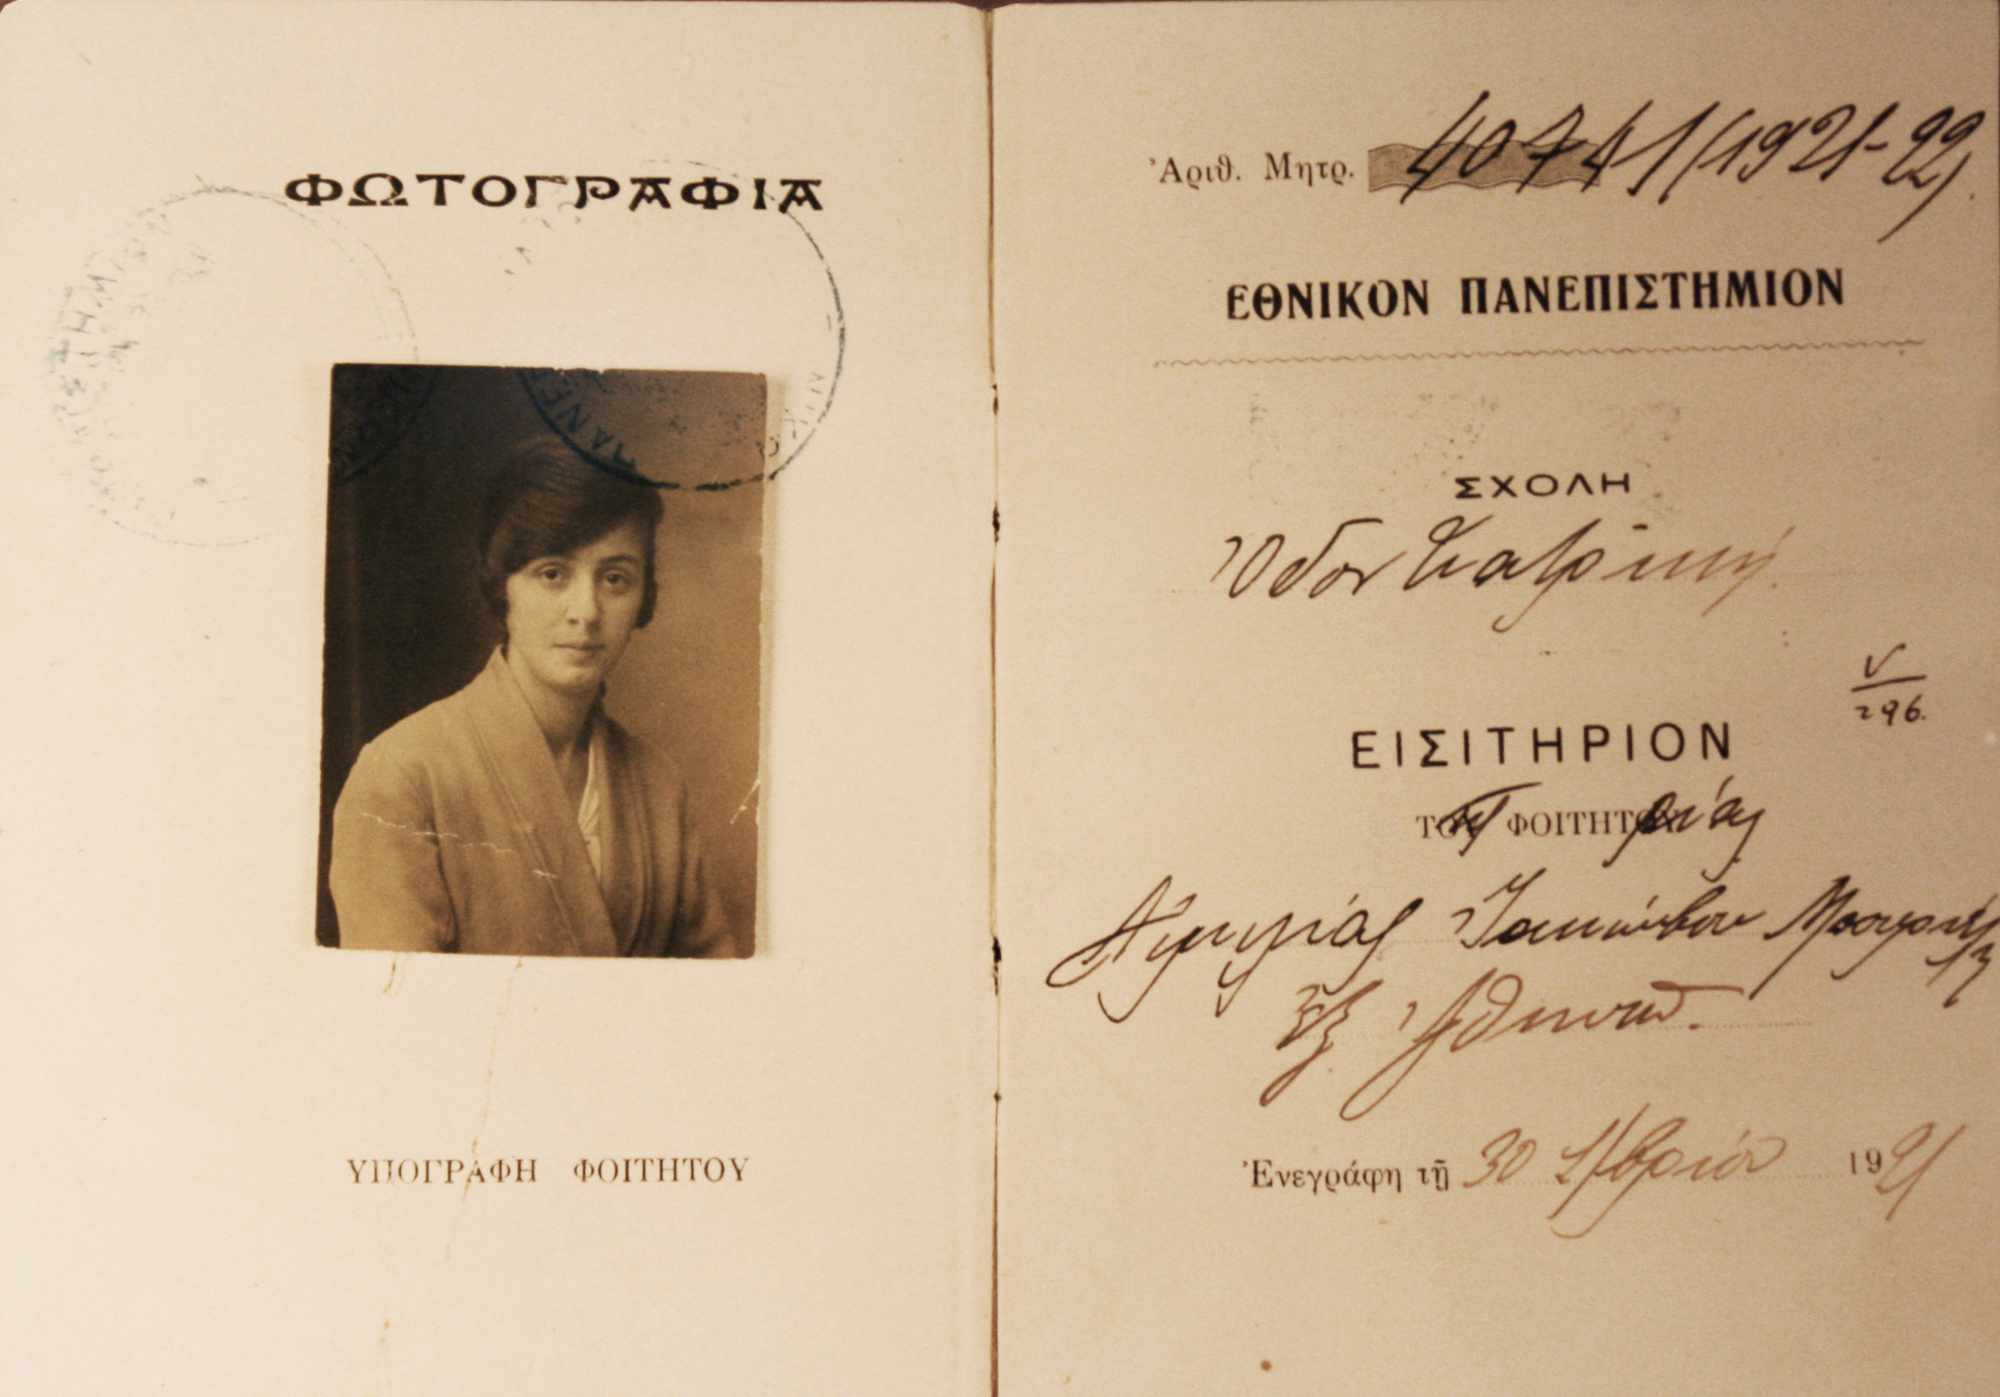 ΦΩΤΟΓΡΑΦΙΑ
ΠΑΝΕ
ΥΠΟΓΡΑΦΗ ΦΟΙΤΗΤΟΥ
Ἀριθ. Μητρ. 4074 (1921-22)
ΕΘΝΙΚΟΝ ΠΑΝΕΠΙΣΤΗΜΙΟΝ
ΣΧΟΛΗ
Ὀδοντιατρική
V
296.
ΕΙΣΙΤΗΡΙΟΝ
ΤΗΣ ΦΟΙΤΗΤρίας
Αἰμιλίας Ἰακώβου
Ἐξ Ἀθηνῶν.
Ἐνεγράφη τῇ 30 1921